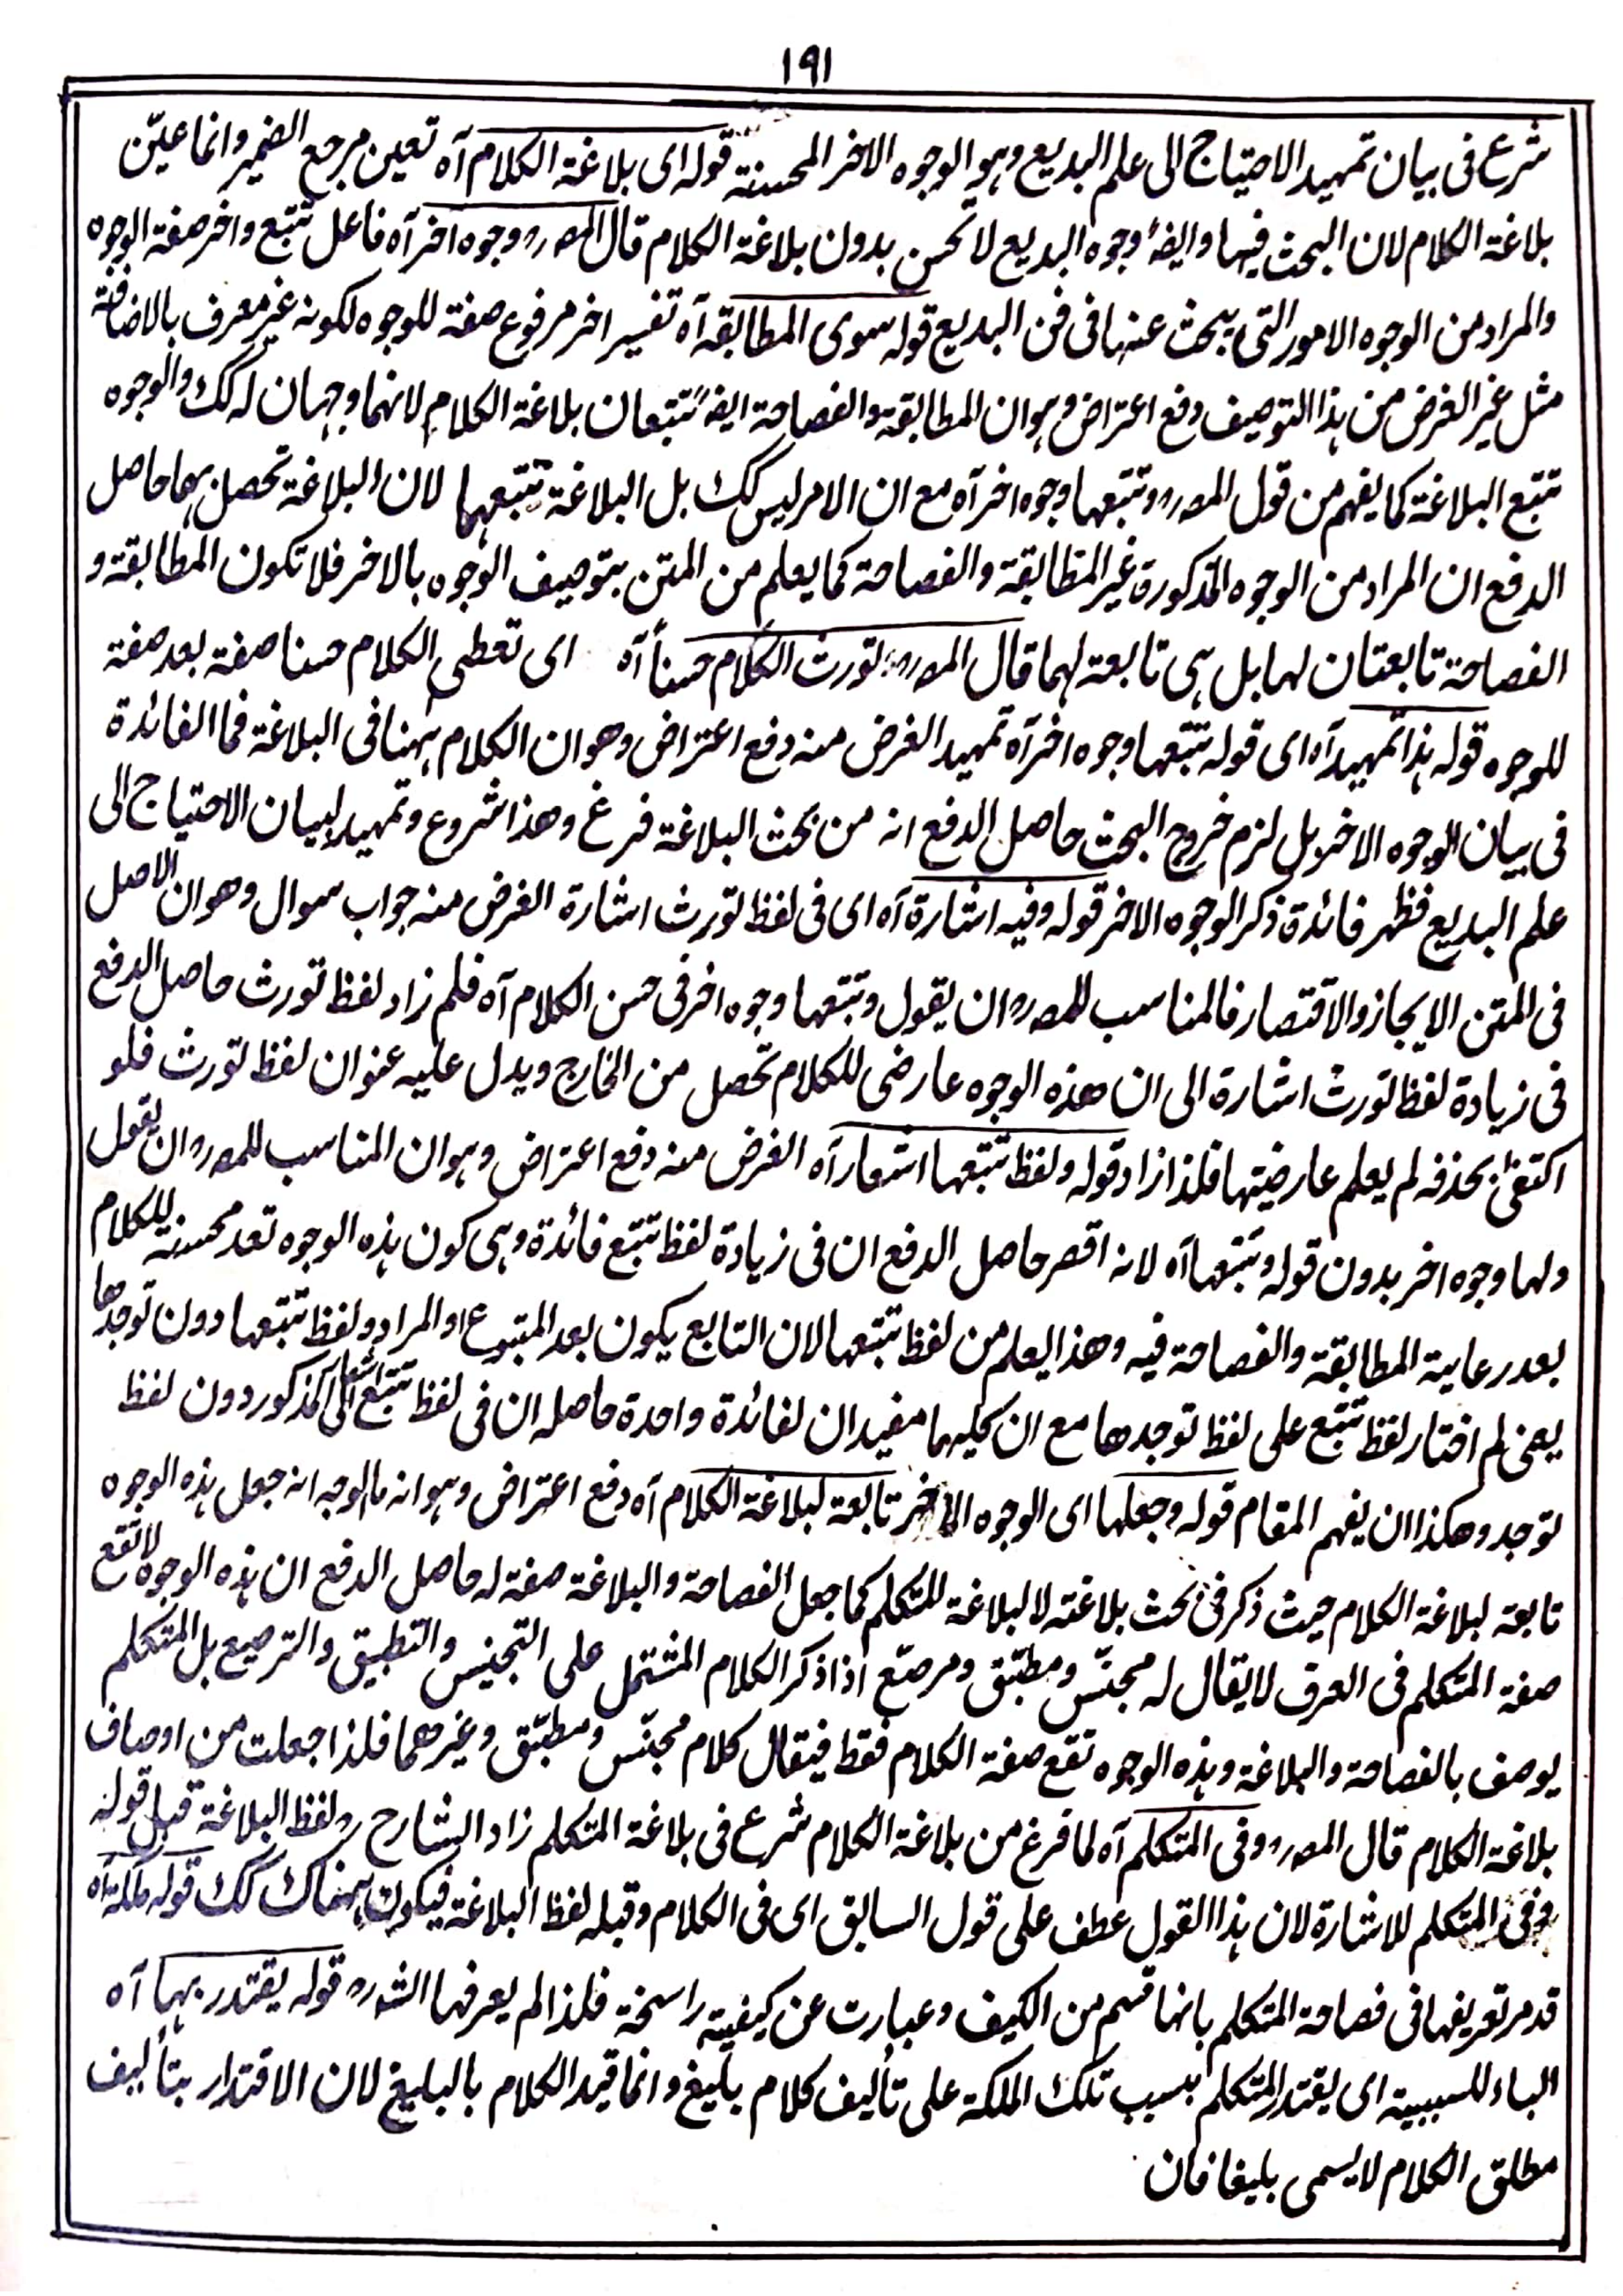 ۱۹۱
شرع فى بيان تمهيد الاحتياج الى علم البديع وهو الوجوه الاخر المحسنة قوله اى بلاغة الكلام آه تعين مرجع الضمير وانما عيّن
بلاغة الكلام لان البحث فيها وايضاً وجوه البديع لا تحسن بدون بلاغة الكلام قال المصرح وجوه اخر آه فاعل تتبع واخر صفة الوجوه
والمراد من الوجوه الامور التى يبحث عنها فى فن البديع قوله سوى المطابقة آه تفسير اخر مرفوع صفة للوجوه لكونه غير معرف بالاضافة
مثل غير الغرض من هذا التوصيف دفع اعتراض وهو ان المطابقة والفصاحة ايضاً تتبعان بلاغة الكلام لانهما وجهان له كك والوجوه
تتبع البلاغة كما يفهم من قول المصرح وتتبعها وجوه اخر آه مع ان الامر ليس كك بل البلاغة تتبعهما لان البلاغة تحصل بهما حاصل
الدفع ان المراد من الوجوه المذكورة غير المطابقة والفصاحة كما يعلم من المتن بتوصيف الوجوه بالاخر فلا تكون المطابقة و
الفصاحة تابعتان لها بل هى تابعة لهما قال المصرح تورث الكلام حسناً آه اى تعطى الكلام حسنا صفة بعد صفة
للوجوه قوله هذا تمهيد آه اى قوله تتبعها وجوه اخر آه تمهيد الغرض منه دفع اعتراض وهو ان الكلام ههنا فى البلاغة فما الفائدة
فى بيان الوجوه الاخر بل لزم خروج البحث حاصل الدفع انه من بحث البلاغة فرغ وهذا شروع وتمهيد لبيان الاحتياج الى
علم البديع فظهر فائدة ذكر الوجوه الاخر قوله وفيه اشارة آه اى فى لفظ تورث اشارة الغرض منه جواب سوال وهو ان الاصل
فى المتن الايجاز والاقتصار فالمناسب للمصرح ان يقول وتتبعها وجوه اخر فى حسن الكلام آه فلم زاد لفظ تورث حاصل الدفع
فى زيادة لفظ تورث اشارة الى ان هذه الوجوه عارضى للكلام تحصل من الخارج ويدل عليه عنوان لفظ تورث فلو
اكتفىٰ بحذفه لم يعلم عارضيتها فلذا زاد قوله ولفظ تتبعها اشعار آه الغرض منه دفع اعتراض وهو ان المناسب للمصرح ان يقول
ولها وجوه اخر بدون قوله وتتبعها آه لانه اقصر حاصل الدفع ان فى زيادة لفظ تتبع فائدة وهى كون هذه الوجوه تعد محسنة للكلام
بعد رعاية المطابقة والفصاحة فيه وهذا يعلم من لفظ تتبعها لان التابع يكون بعد المتبوع او المراد ولفظ تتبعها دون توجدها
يعنى لم اختار لفظ تتبع على لفظ توجدها مع ان كليهما مفيدان لفائدة واحدة حاصله ان فى لفظ تتبع اشعار الى المذكور دون لفظ
توجد وهكذا ان يفهم المقام قوله وجعلها اى الوجوه الاخر تابعة لبلاغة الكلام آه دفع اعتراض وهو انه ما الوجه انه جعل هذه الوجوه
تابعة لبلاغة الكلام حيث ذكر فى بحث بلاغته لا لبلاغة للمتكلم كما جعل الفصاحة والبلاغة صفة له حاصل الدفع ان هذه الوجوه لا تقع
صفة المتكلم فى العرف لا يقال له مجنّس ومطبّق ومرصّع اذا ذكر الكلام المشتمل على التجنيس والتطبيق والترصيع بل المتكلم
يوصف بالفصاحة والبلاغة وهذه الوجوه تقع صفة الكلام فقط فيقال كلام مجنّس ومطبّق وغيرهما فلذا جعلت من اوصاف
بلاغة الكلام قال المصرح وفى المتكلم آه لما فرغ من بلاغة الكلام شرع فى بلاغة المتكلم زاد الشارح رح لفظ البلاغة قبل قوله
وفى المتكلم للاشارة لان هذا القول عطف على قول السابق اى فى الكلام وقبله لفظ البلاغة فيكون ههناك كك قوله ملكة آه
قد مر تعريفها فى فصاحة المتكلم بانها قسم من الكيف وعبارت عن كيفية راسخة فلذا لم يعرفها الشرح قوله يقتدر بها آه
الباء للسببية اى يقتدر المتكلم بسبب تلك الملكة على تأليف كلام بليغ وانما قيد الكلام بالبليغ لان الاقتدار بتأليف
مطلق الكلام لا يسمى بليغا فان